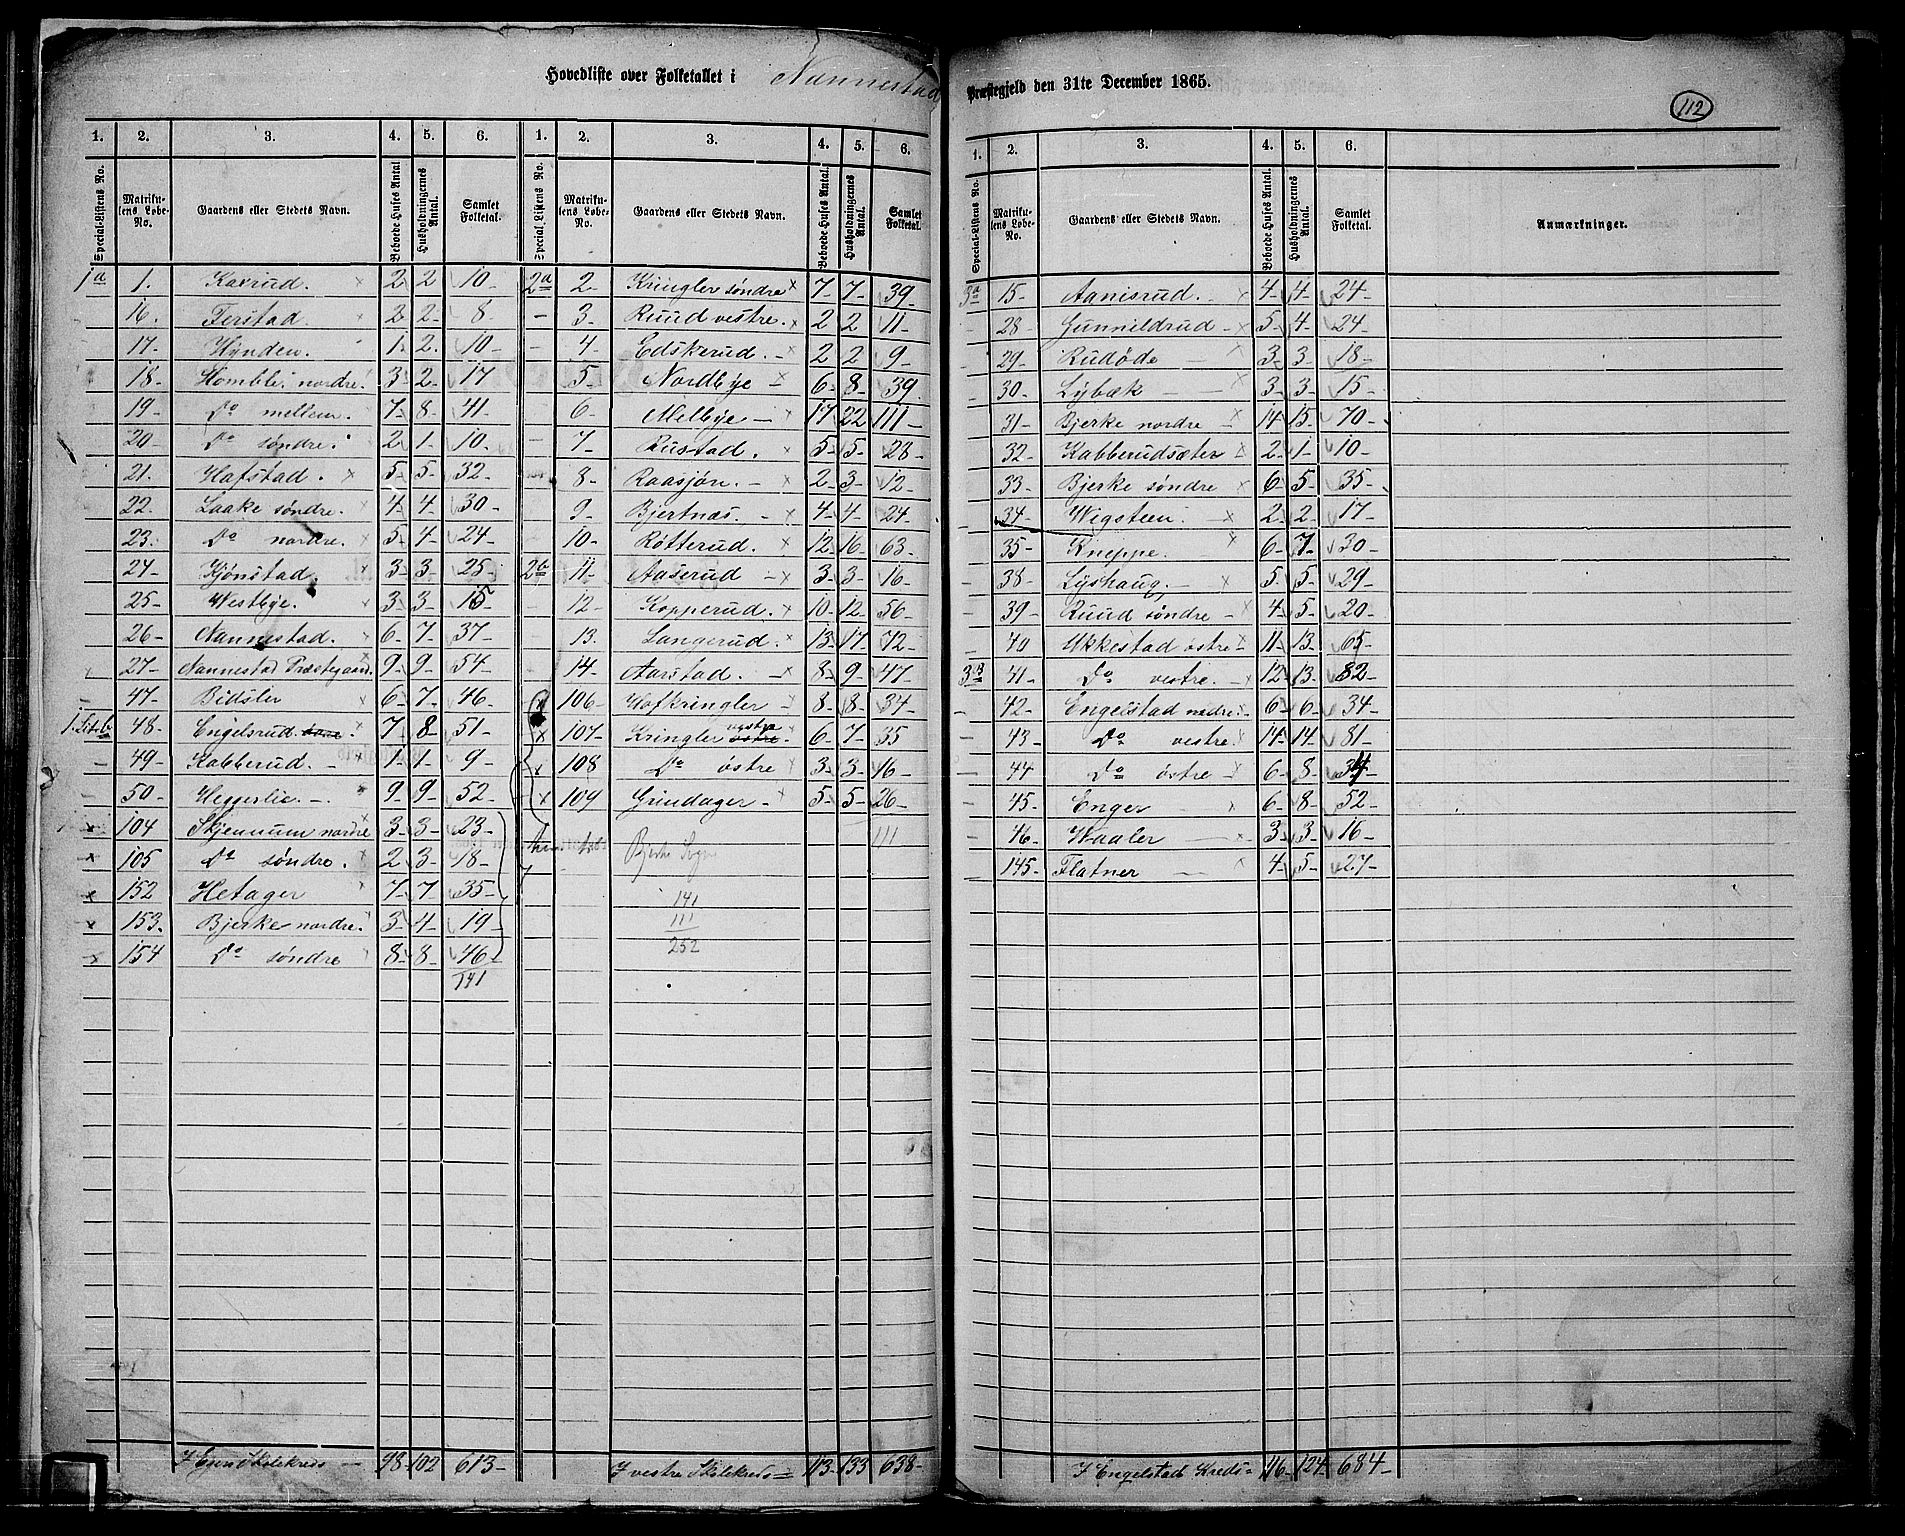 Hovedliste over Folketallet i Nannestad Præstegjeld den 31te December 1865.
112
1. 2. 3. 4. 5. 6.
Special-Listens No. Matrikulens Løbe-No. Gaardens eller Stedets Navn. Beboede Huses Antal Husholdningernes Antal. Samlet Folketal.
1a 1. Kaxrud. 2 2 10
16. Ferstad. 2 2 8
17. Hynden. 1 2 10
18. Homble nordre. 3 2 17
19. Do mellem. 7 8 41
20. Do søndre. 2 1 10
21. Hafstad. 5 5 32
22. Laake søndre. 4 4 30
23. Do nordre. 5 4 24
24. Kjønstad. 3 3 25
25. Westbye. 3 3 15
26. Nannestad. 6 7 37
27. Nannestad Præstegaard. 9 9 54
47. Bidsler 6 7 46
1. Lit. b. 48. Engelsrud. 7 8 51
49. Kabberud. 1 1 9
50. Heggerlie. 9 9 52
104 Skjennum nordre 3 3 23
105 Do søndre. 2 3 18
152 Hetager 7 7 35
153. Bjerke nordre. 3 4 19
154 Do søndre 8 8 46
141
I Egen Skolekreds 98 102 613
1. 2. 3. 4. 5. 6.
Special-Listens No. Matrikulens Løbe-No. Gaardens eller Stedets Navn. Beboede Huses Antal. Husholdningernes Antal. Samlet Folketal.
2a 2 Kringler søndre 7 7 39
3 Ruud vestre. 2 2 11
4 Edskerud. 2 2 9
5 Nordbye 6 8 39
6 Melbye 17 22 111
7 Rustad. 5 5 28
8 Raasjøn. 2 3 12
9 Bjertnæs. 4 4 24
10 Røtterud. 12 16 63
11 Aaserud 3 3 16
12 Kopperud. 10 12 56
13. Langerud. 13 17 72
14 Aarstad. 8 9 47
106 Hofkringler 8 8 34
107 Kringler vestre østre. 6 7 35
108 Do østre 3 3 16
109 Grindager 5 5 26
111
Bjerke Sogn
141
111
252
I vestre Skolekreds 113 133 638
1. 2. 3. 4. 5. 6.
Special-Listens No. Matrikulens Løbe-No. Gaardens eller Stedets Navn. Beboede Huses Antal. Husholdningernes Antal. Samlet Folketal. Anmærkninger.
3a 15 Aanisrud. 4 4 24
28 Gunnildrud 5 4 24
29 Rudøde 3 3 18
30 Lybæk 3 3 15
31 Bjerke nordre 14 15 70
32 Kabberudsæter 2 1 10
33 Bjerke søndre 6 5 35
34 Wigsteen. 2 2 17
35 Kneppe. 6 7 30
38 Lyshaug. 5 5 29
39 Ruud søndre 4 5 20
40 Ukkestad østre 11 13 65
3B 41 Do vestre. 12 13 82
42 Engelstad nordre. 6 6 34
43 Do vestre. 14 14 81
44 Do østre 6 8 34
45 Enger 6 8 52
46 Waaler 3 3 16
145 Flatner 4 5 27
I Engelstad Kreds 116 124 684